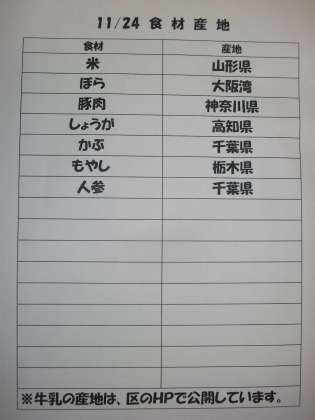 11/24 食材産地
食材 産地
米 山形県
ぼら 大阪湾
豚肉 神奈川県
しょうが 高知県
かぶ 千葉県
もやし 栃木県
人参 千葉県
※牛乳の産地は、区のHPで公開しています。